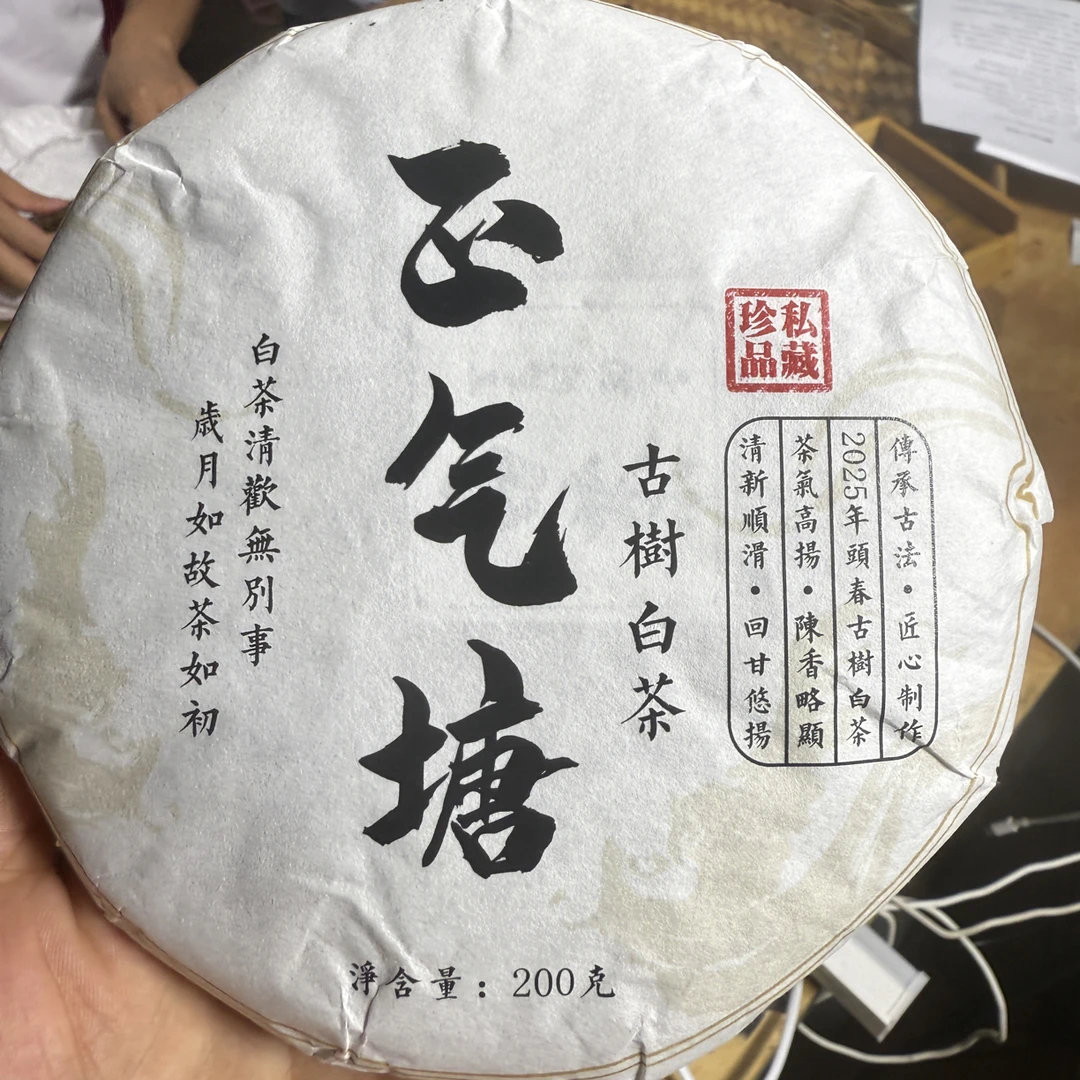 正气塘
古樹白茶
私藏
珍品
傳承古法·匠心制作
2025年頭春古樹白茶
茶氣高揚·陳香略顯
清新順滑·回甘悠揚
白茶清歡無別事
歲月如故茶如初
淨含量：200克